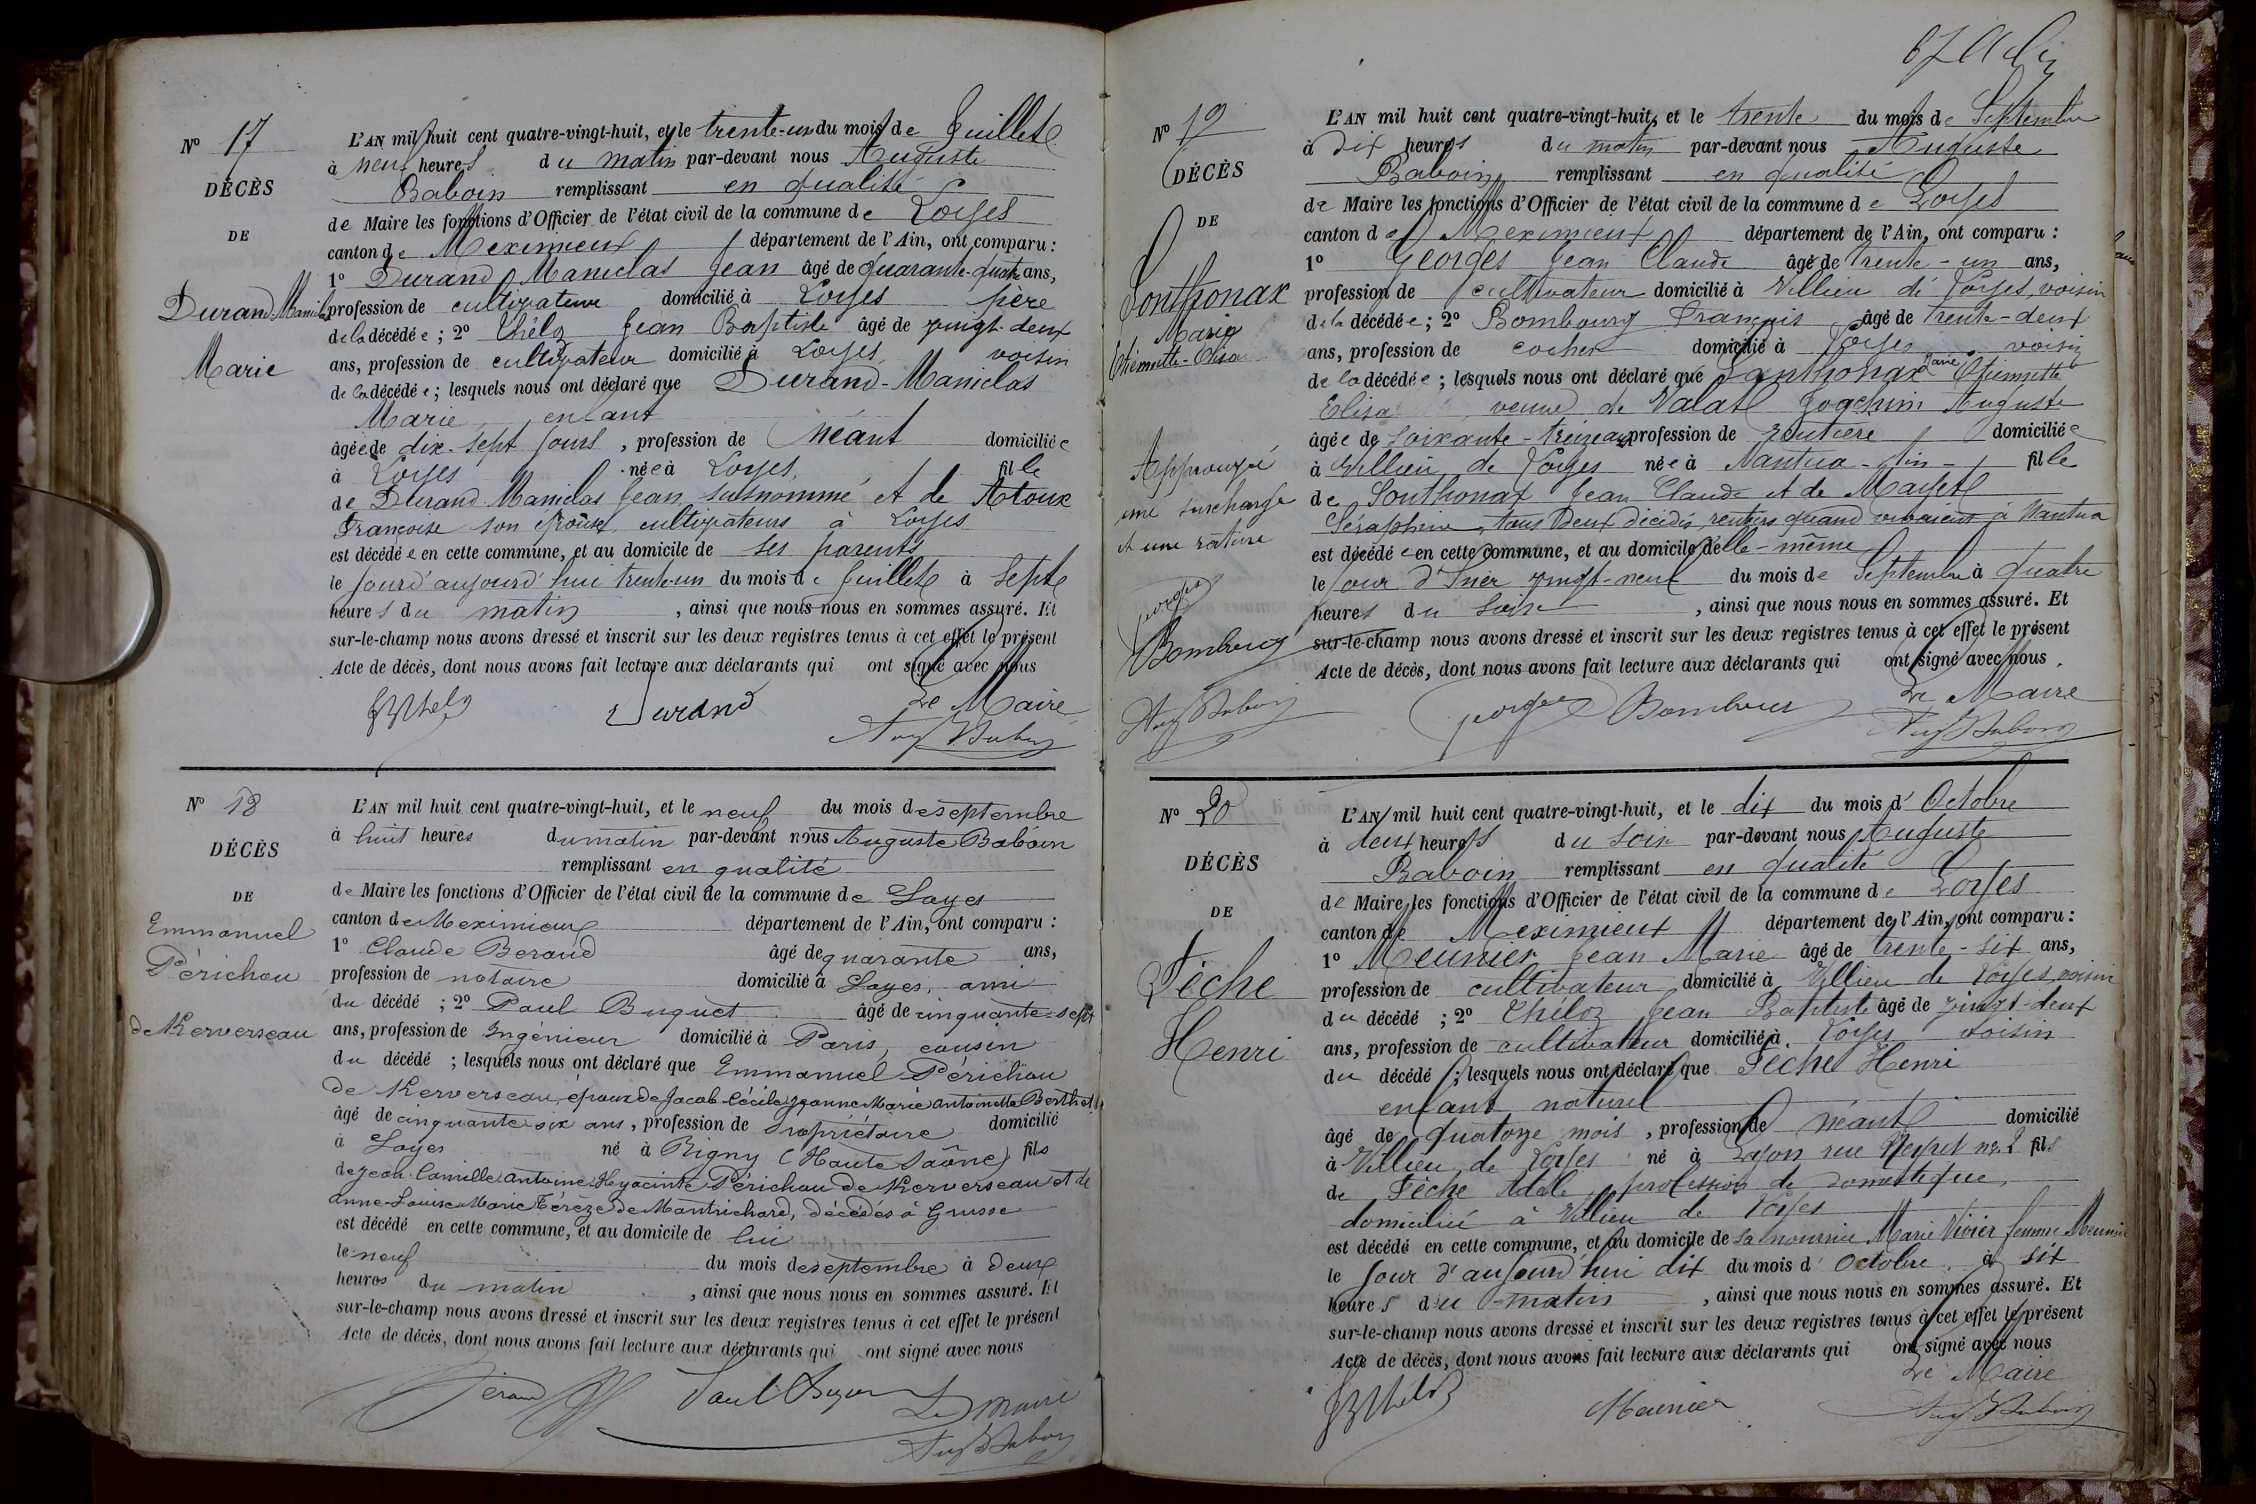 N° 17
DÉCÈS
DE
Durand-Maniclas
Marie
L'AN mil huit cent quatre-vingt-huit, et le trente-un du mois de Juillet
à neuf heures du matin par-devant nous Auguste
Baboin remplissant en qualité
de Maire les fonctions d'Officier de l'état civil de la commune de Loyes
canton de Meximieux département de l'Ain, ont comparu :
1° Durand Maniclas Jean âgé de quarante-quatre ans,
profession de cultivateur domicilié à Loyes père
de la décédée ; 2° Théloz Jean Baptiste âgé de vingt-deux
ans, profession de cultivateur domicilié à Loyes voisin
de la décédée ; lesquels nous ont déclaré que Durand-Maniclas
Marie enfant
âgée de dix-sept jours, profession de Néant domiciliée
à Loyes née à Loyes fille
de Durand Maniclas Jean susnommé et de
Françoise son épouse cultivateurs à Loyes
est décédée en cette commune, et au domicile de ses parents
le jour d'aujourd'hui trente-un du mois de Juillet à sept
heures du matin, ainsi que nous nous en sommes assuré. Et
sur-le-champ nous avons dressé et inscrit sur les deux registres tenus à cet effet le présent
Acte de décès, dont nous avons fait lecture aux déclarants qui ont signé avec nous
JB Theloz Durand Le Maire
Aug Baboin
N° 18
DÉCÈS
DE
Emmanuel
Périchou
de Kerverseau
L'AN mil huit cent quatre-vingt-huit, et le neuf du mois de septembre
à huit heures du matin par-devant nous Auguste Baboin
remplissant en qualité
de Maire les fonctions d'Officier de l'état civil de la commune de Loyes
canton de Meximieux département de l'Ain, ont comparu :
1° Claude Beraud âgé de quarante ans,
profession de notaire domicilié à Loyes, ami
du décédé ; 2° Paul Buquet âgé de cinquante-sept
ans, profession de Ingénieur domicilié à Paris, cousin
du décédé ; lesquels nous ont déclaré que Emmanuel Périchou
de Kerverseau, époux de Jacob Cécile Jeanne Marie Antoinette Berthet
âgé de cinquante-six ans, profession de Propriétaire domicilié
à Loyes né à Rigny (Haute Saône) fils
de Jean Camille Antoine Hyacinte Périchou de Kerverseau et de
Anne-Louise Marie Térèze de Montrichard, décédés à Grusse
est décédé en cette commune, et au domicile de lui
le neuf du mois de septembre à deux
heures du matin, ainsi que nous nous en sommes assuré. Et
sur-le-champ nous avons dressé et inscrit sur les deux registres tenus à cet effet le présent
Acte de décès, dont nous avons fait lecture aux déclarants qui ont signé avec nous
Beraud Paul Buquet Le Maire
Aug Baboin
N° 19
DÉCÈS
DE
Sonthonax
Marie
Etiennette-Elisa
Approuvé
une surcharge
et une rature
Georges
Bombourg
Aug Baboin
L'AN mil huit cent quatre-vingt-huit, et le trente du mois de Septembre
à dix heures du matin par-devant nous Auguste
Baboin remplissant en qualité
de Maire les fonctions d'Officier de l'état civil de la commune de Loyes
canton de Meximieux département de l'Ain, ont comparu :
1° Georges Jean Claude âgé de trente-un ans,
profession de cultivateur domicilié à Villieu de Loyes, voisin
de la décédée ; 2° Bombourg François âgé de trente-deux
ans, profession de cocher domicilié à Loyes voisin
de la décédée ; lesquels nous ont déclaré que Sonthonax Marie Etiennette
Elisa veuve de Valat Joachim Auguste
âgée de soixante-treize ans profession de rentière domiciliée
à Villieu de Loyes née à Nantua - Ain - fille
de Sonthonax Jean Claude et de Mayet
Séraphine, tous deux décédés, rentiers quand vivaient à Nantua
est décédée en cette commune, et au domicile d'elle-même
le jour d'hier vingt-neuf du mois de Septembre à quatre
heures du soir, ainsi que nous nous en sommes assuré. Et
sur-le-champ nous avons dressé et inscrit sur les deux registres tenus à cet effet le présent
Acte de décès, dont nous avons fait lecture aux déclarants qui ont signé avec nous.
Georges Bombourg Le Maire
Aug Baboin
N° 20
DÉCÈS
DE
Fèche
Henri
L'AN mil huit cent quatre-vingt-huit, et le dix du mois d'Octobre
à deux heures du soir par-devant nous Auguste
Baboin remplissant en qualité
de Maire les fonctions d'Officier de l'état civil de la commune de Loyes
canton de Meximieux département de l'Ain, ont comparu :
1° Meunier Jean Marie âgé de trente-six ans,
profession de cultivateur domicilié à Villieu de Loyes, voisin
du décédé ; 2° Théloz Jean Baptiste âgé de vingt-deux
ans, profession de cultivateur domicilié à Loyes voisin
du décédé ; lesquels nous ont déclaré que Fèche Henri
enfant naturel
âgé de quatorze mois, profession de néant domicilié
à Villieu de Loyes né à Lyon rue Neyret n° 2 fils
de Fèche Adèle, profession de domestique,
domiciliée à Villieu de Loyes
est décédé en cette commune, et au domicile de sa nourrice Marie Vivier femme Meunier
le jour d'aujourd'hui dix du mois d'Octobre à six
heures du matin, ainsi que nous nous en sommes assuré. Et
sur-le-champ nous avons dressé et inscrit sur les deux registres tenus à cet effet le présent
Acte de décès, dont nous avons fait lecture aux déclarants qui ont signé avec nous
Le Maire
JB Theloz Meunier Aug Baboin